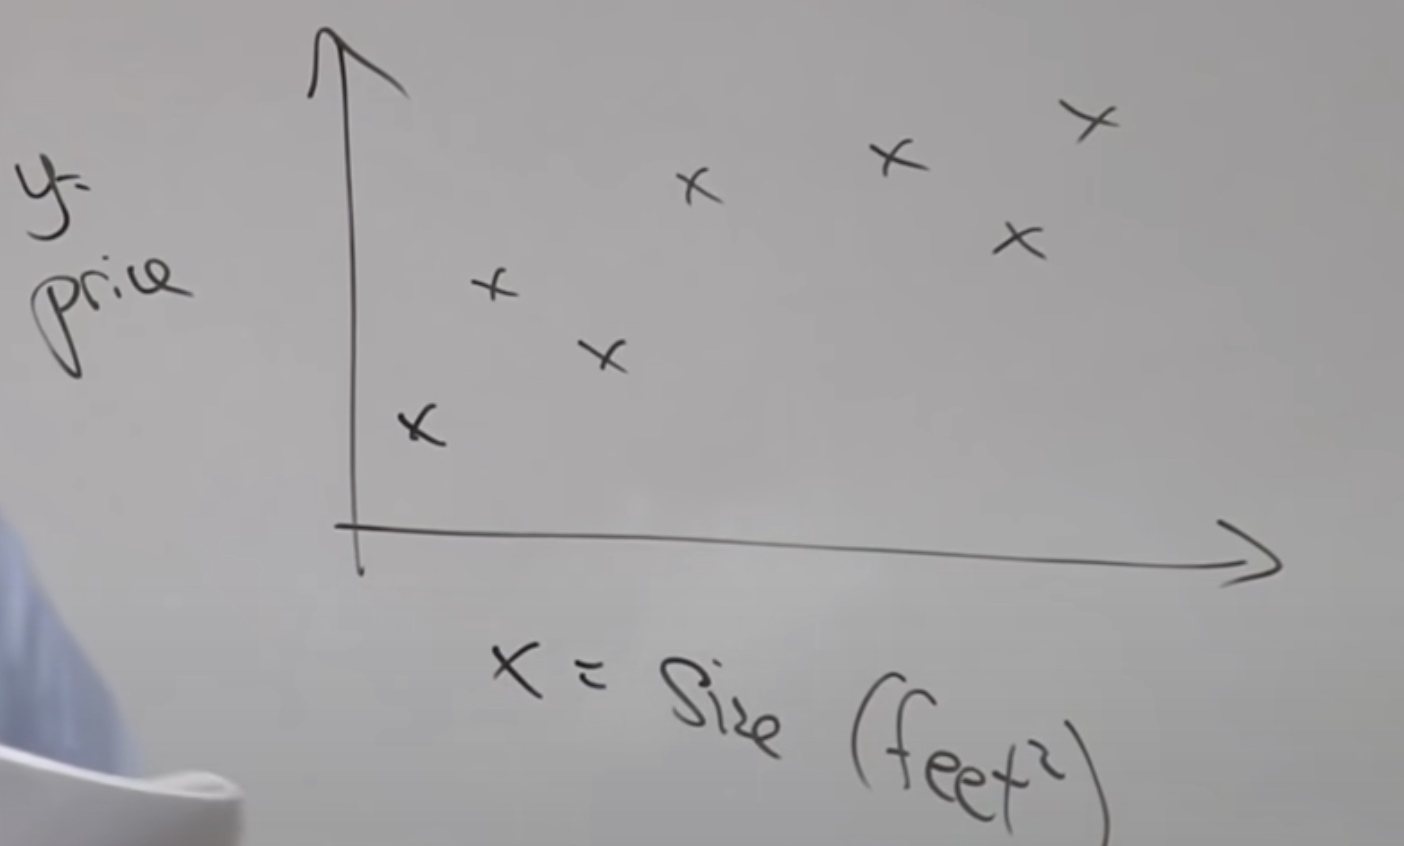 y=
price
x = Size (feet²)